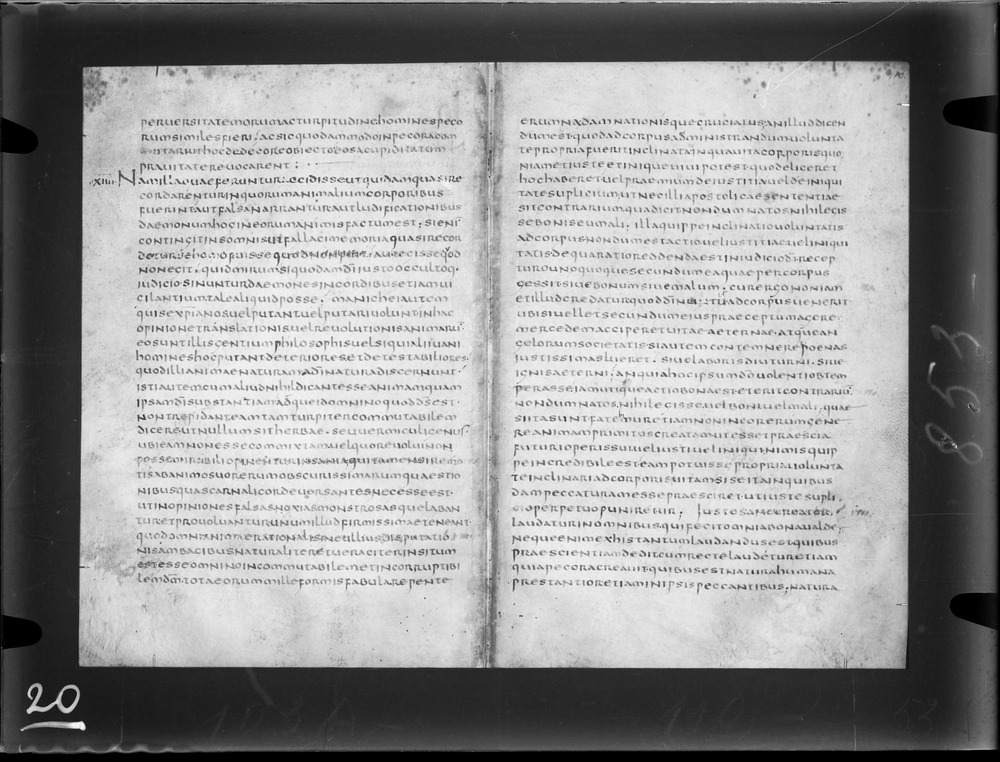 PERUERSITATEMORUMACTURPITUDINEHOMINESPECO
RUMSIMILESFIERI·ACSICQUODAMMODOINPECORACOM
MUTARIUTHOCDEDECOREOBIECTOEOSACUPIDITATUM
PRAUITATEREUOCARENT:
XIIII· NAMILLAQUAEFERUNTUR·OCIDISSEUTQUIDAMQUASIRE
CORDARENTURINQUORUMANIMALIUMCORPORIBUS
FUERINTAUTFALSANARRANTURAUTLUDIFICATIONIBUS
DAEMONUMHOCINEORUMANIMISFACTUMEST,SIENI
CONTINGITINSOMNISUTFALLACIMEMORIAQUASIRECOR
NONECIT·QUIDMIRUMSIQUODAMDĪIUSTOOCCULTOQ·
IUDICIO·SINUNTURDAEMONESINCORDIBUSETIAMUI
GILANTIUMTALEALIQUIDPOSSE· MANICHEIAUTEM
QUISEXPIANOSUELPUTANTUELPUTARIUOLUNTINHAC
OPINIONETRANSLATIONISUELREUOLUTIONISANIMARU
EOSUNTILLISGENTIUMPHILOSOPHISUELSIQUIALIIUANI
HOMINESHOCPUTANTDETERIORESETDETESTABILIORES·
QUODILLIANIMAENATURAMADĪNATURADISCERNUNT·
ISTIAUTEMCUMALIUDNIHILDICANTESSEANIMAMQUAM
IPSAMDĪSUBSTANTIAMADQUEIDOMNINOQUODDSEST·
NONTREPIDANTEAMTAMTURPITERCOMMUTABILEM
DICEREUTNULLUMSITHERBAE·SEUUERMICULIGENUS
UBIEAMNONESSECOMMIXTAMUELQUOREUOLUINON
TISABANIMOSUORERUMOBSCURISSIMARUMQUAESTIO
NIBUSQUASCARNALICORDEUERSANTESNECESSEEST·
UTINOPINIONESFALSASNOXIASMONSTROSASQUELABAN
TURETPROUOLUANTURUNUMILLUDFIRMISSIMAETENEANT
QUODOMNIANIMAERATIONALISINETILLIUSDISPUTATIO
NISAMBAGIBUSNATURALITERETUERACITERINSITUM
ESTESSEOMNINOINCOMMUTABILEMETINCORRUPTIBI
LEMDMTOTAEORUMMILLEFORMISFABULAREPENTE
10
ERUMNADAMNATIONISQUECRUCIATUSANILLUDDICEN
DUMESTQUODADCORPUSADMINISTRANDUMUOLUNTA
TEPROPRIAFUERITINCLINATAINQUAUITACORPORISQUO
NIAMETIUSTEETINIQUEUIUIPOTESTQUODELIGERET
HOCHABERETUELPRAEMIUMDEIUSTITIAUELDEINIQUI
TATESUPLICIUMUTNECILLIAPOSTOLICAESENTENTIAE
SITCONTRARIUMQUADICITNONDUMNATOSNIHILEGIS
SEBONISEUMALI· ILLAQUIPPEINCLINATIOUOLUNTATIS
ADCORPUSNONDUMESTACTIOUELIUSTITIAEUELINIQUI
TATISDEQUARATIOREDDENDAESTINIUDICIODĪRECEP
TUROUNOQUOQUESECUNDUMEAQUAEPERCORPUS
GESSITSIUEBONUMSIUEMALUM· CURERGONONIAM
ETILLUDCREDATURQUODDĪNUTUADCORPUSUENERIT
UBISIUELLETSECUNDUMEIUSPRAECEPTUMAGERE
MERCEDEMACCIPERETUITAEAETERNAE·ATQUEAN
GELORUMSOCIETATISSIAUTEMCONTEMNEREPOENAS
IUSTISSIMASLUERET· SIUELABORISDIUTURNI·SIUE
IGNISAETERNI·ANQUIAHOCIPSUMDŌUOLENTIOBTEM
PERASSEIAMUTIQUEACTIOBONAESTETERITCONTRARIU
NONDUMNATOS·NIHILEGISSEUELBONIUELMALI·QUAE
SIITASUNTFATEBIMURETIAMNONINEORERUMGENE
REANIMAMPRIMITUSCREATAMUTESSETPRAESCIA
FUTURIOPERISSUIUELIUSTIUELINIQUINIMISQUIP
PEINCREDIBILEESTEAMPOTUISSEPROPRIAUOLUNTA
TEINCLINARIADCORPORISUITAMSIEEITAINQUIBUS
DAMPECCATURAMESSEPRAESCIRETUTIUSTESUPLI
CIOPERPETUOPUNIRETUR· IUSTESANECREATOR·
LAUDATURINOMNIBUSQUIFECITOMNIABONAUALDE·
NEQUEENIMEXHISTANTUMLAUDANDUSESTQUIBUS
PRAESCIENTIAMDEDITCUMRECTELAUDETURETIAM
QUIAPECORACREAUITQUIBUSESTNATURAHUMANA
PRESTANTIORETIAMINIPSISPECCANTIBUS·NATURA
853
20